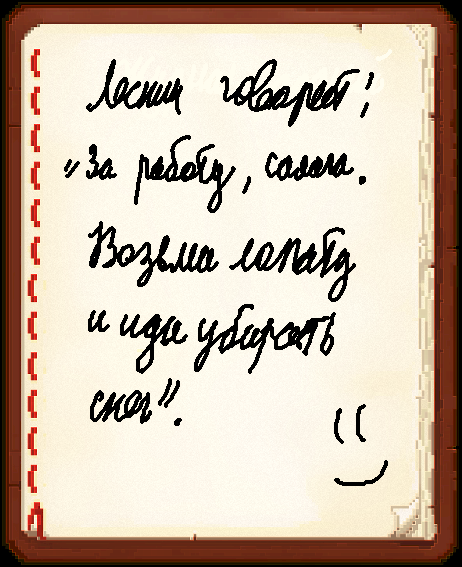 Лесник говарет:
"За работу, салага.
Возьми лопату
и иди убирать
снег".